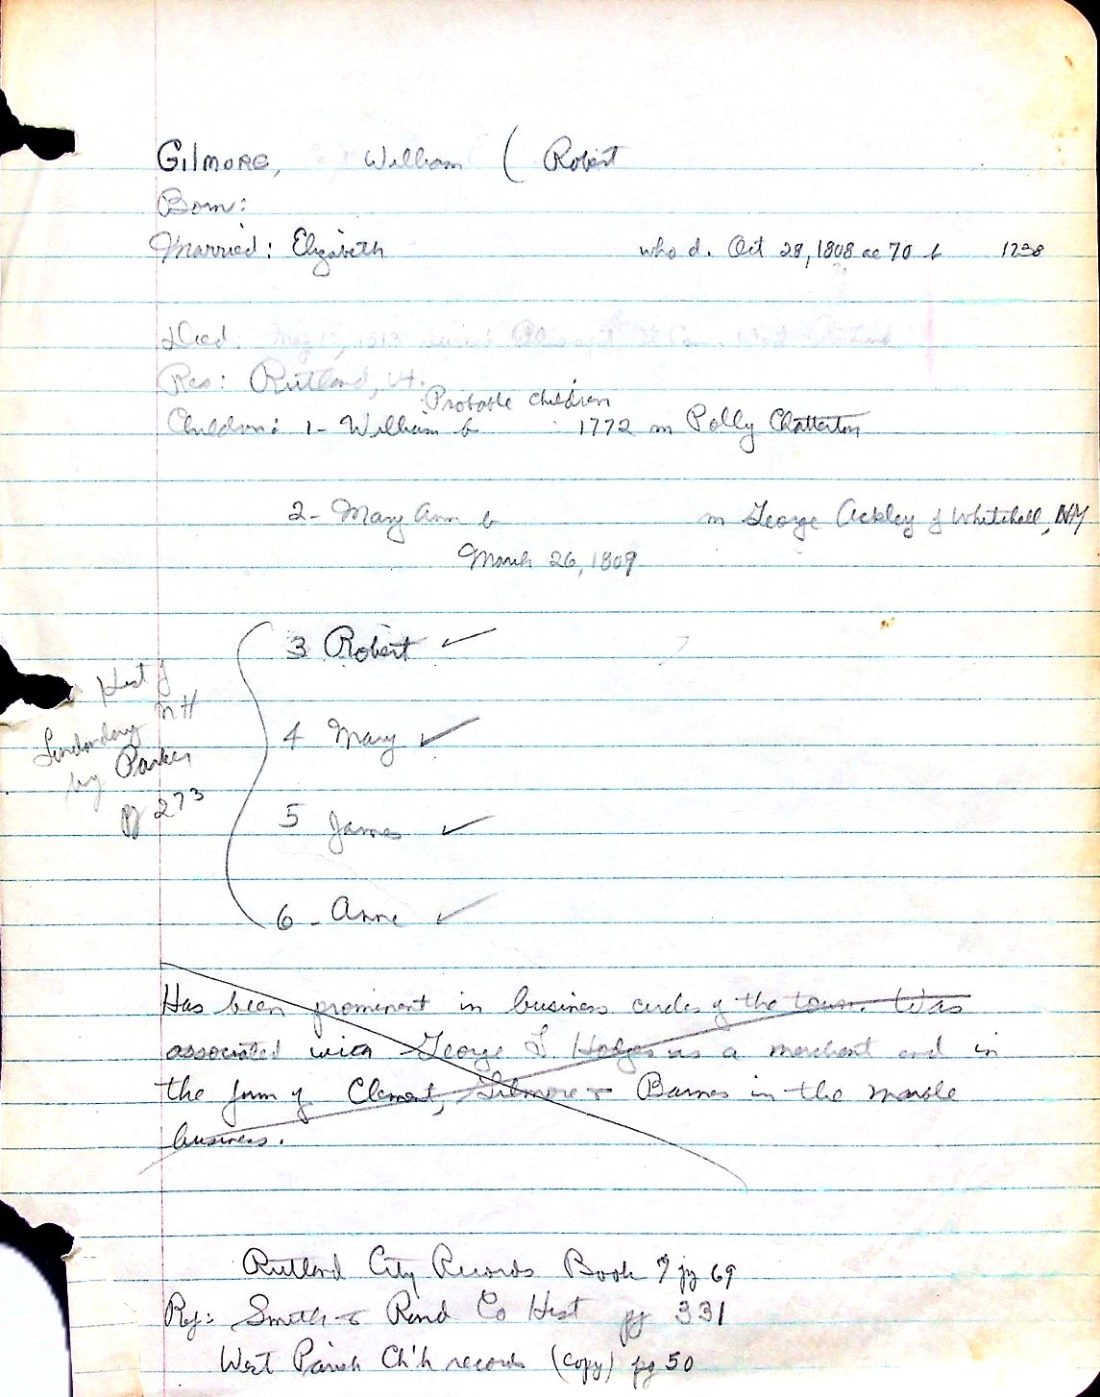 GILMORE, William ( Robert
Born:
Married: Elizabeth who d. Oct 28, 1808 ae 70 b 1738
Died: May 1813 buried Pleasant St Cem. West Rutland
Res: Rutland, Vt.
Probable children
Children: 1- William b 1772 m Polly Chatterton
2- Mary Ann b m George Ackley of Whitehall, NY
March 26, 1809
3 Robert ✓
Hist of
Londonderry NH
by Parker
pg 273
4 Mary ✓
5 James ✓
6- Anne ✓
Has been prominent in business circles of the town. Was
associated with George L. Hodges as a merchant and in
the firm of Clement, Gilmore & Barnes in the marble
business.
Rutland City Records Book 7 pg 69
Ref: Smith & Rand Co Hist pg 331
West Parish Ch'h records (copy) pg 50